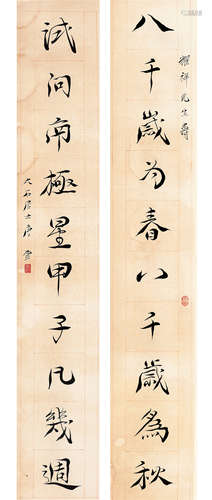 耀祥先生壽
八千歲为春八千歲爲秋
試问南極星甲子凡幾週
大石居士唐雲